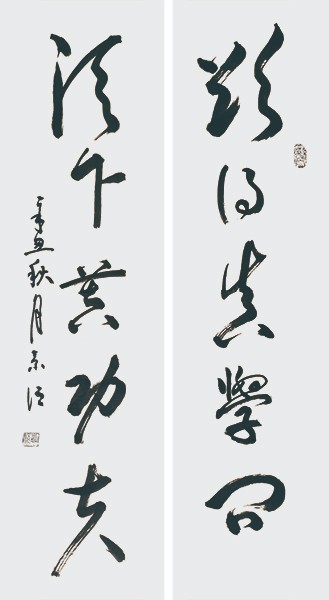 欲得真學問
須下真功夫
辛丑秋月